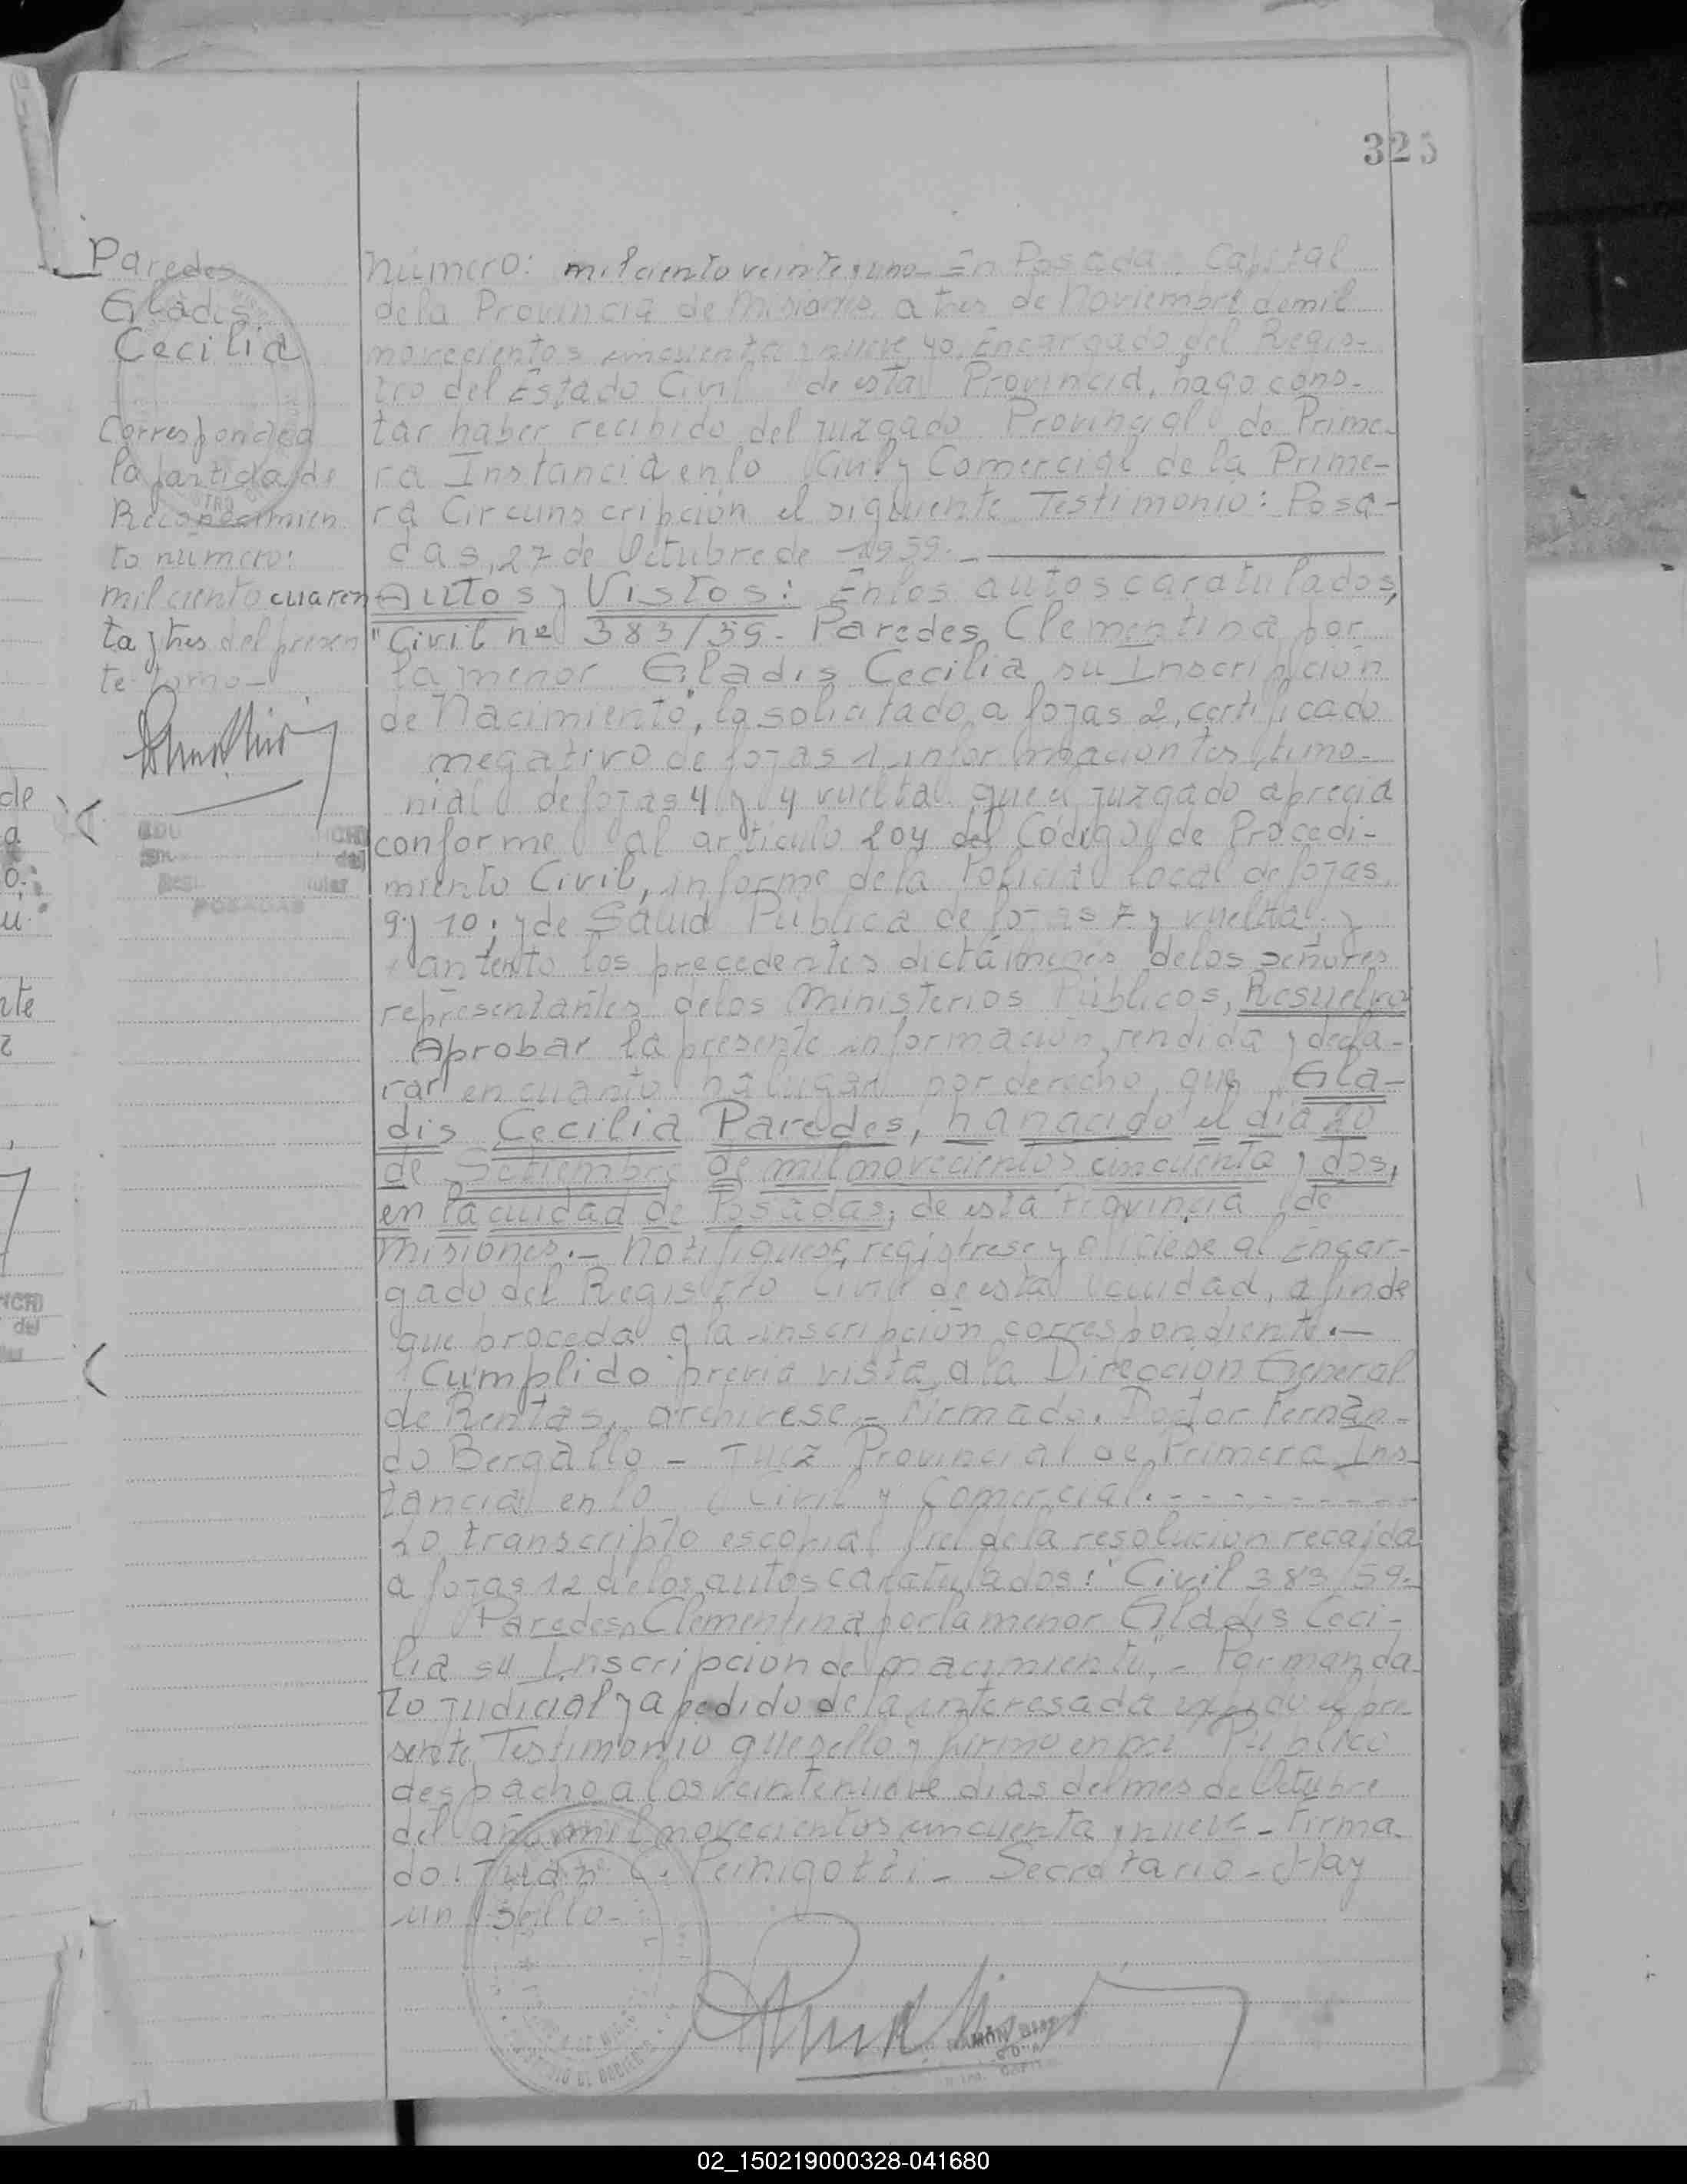 325
Paredes
Gladis
Cecilia
Corresponde a
la partida de
Reconocimien
to número:
mil ciento cuaren
ta y tres del presen
te tomo-
POSADAS
número: mil ciento veinte y uno- En Posadas, Capital
de la Provincia de Misiones, a tres de Noviembre de mil
novecientos cincuenta y nueve, yo, Encargado del Regis-
tro del Estado Civil de esta Provincia, hago cons-
tar haber recibido del Juzgado Provincial de Prime-
ra Instancia en lo Civil y Comercial de la Prime-
ra Circunscripción el siguiente Testimonio: Posa-
das, 27 de Octubre de 1959.-
Autos y Vistos: En los autos caratulados,
"Civil nº 383/59- Paredes, Clementina por
la menor Gladis Cecilia su Inscripción
de Nacimiento", lo solicitado a fojas 2, certificado
negativo de fojas 1, información testimo-
nial de fojas 4 y 4 vuelta que el juzgado aprecia
conforme al artículo 204 del Código de Procedi-
miento Civil, informe de la Policía local de fojas
9 y 10; y de Salud Pública de fojas 7 y vuelta; y
atento los precedentes dictámenes de los señores
representantes de los Ministerios Públicos, Resuelvo
Aprobar la presente información rendida y decla-
rar en cuanto ha lugar por derecho, que Gla-
dis Cecilia Paredes, ha nacido el día 20
de Setiembre de mil novecientos cincuenta y dos,
en la ciudad de Posadas, de esta Provincia de
Misiones.- Notifíquese, regístrese y ofíciese al Encar-
gado del Registro Civil de esta ciudad, a fin de
que proceda a la inscripción correspondiente.-
Cumplido previa vista a la Dirección General
de Rentas, archívese- Firmado. Doctor Fernan-
do Bergallo - Juez Provincial de Primera Ins-
tancia en lo Civil y Comercial.----------
Lo transcripto es copia fiel de la resolución recaída
a fojas 12 de los autos caratulados: "Civil 383/59-
Paredes, Clementina por la menor Gladis Ceci-
lia su Inscripción de nacimiento"- Por manda-
to judicial y a pedido de la interesada expido el pre-
sente Testimonio que sello y firmo en mi Público
despacho a los veintenueve días del mes de Octubre
del año mil novecientos cincuenta y nueve- Firma-
do: Juan C. - Secretario- Hay
un sello-
RAMÓN
de
a
o,
u
nte
02_150219000328-041680